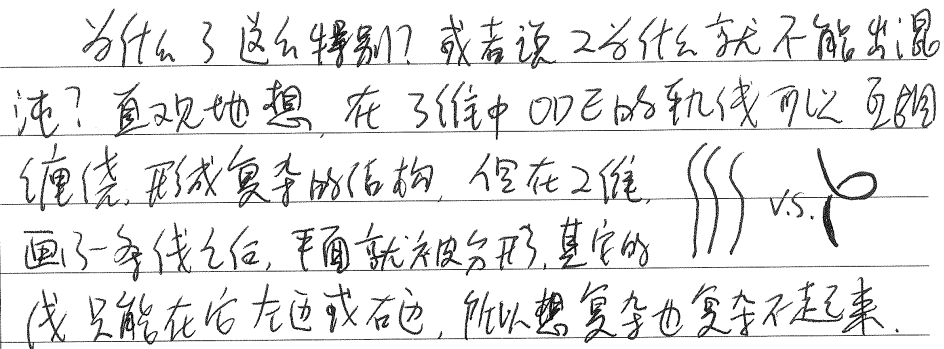 为什么3这么特别？或者说2为什么就不能出混
沌？直观地想，在3维中ODE的轨线可以互相
缠绕，形成复杂的结构，但在2维，
v.s.
画了一条线之后，平面就被分开，其它的
线只能在它左边或右边，所以想复杂也复杂不起来.